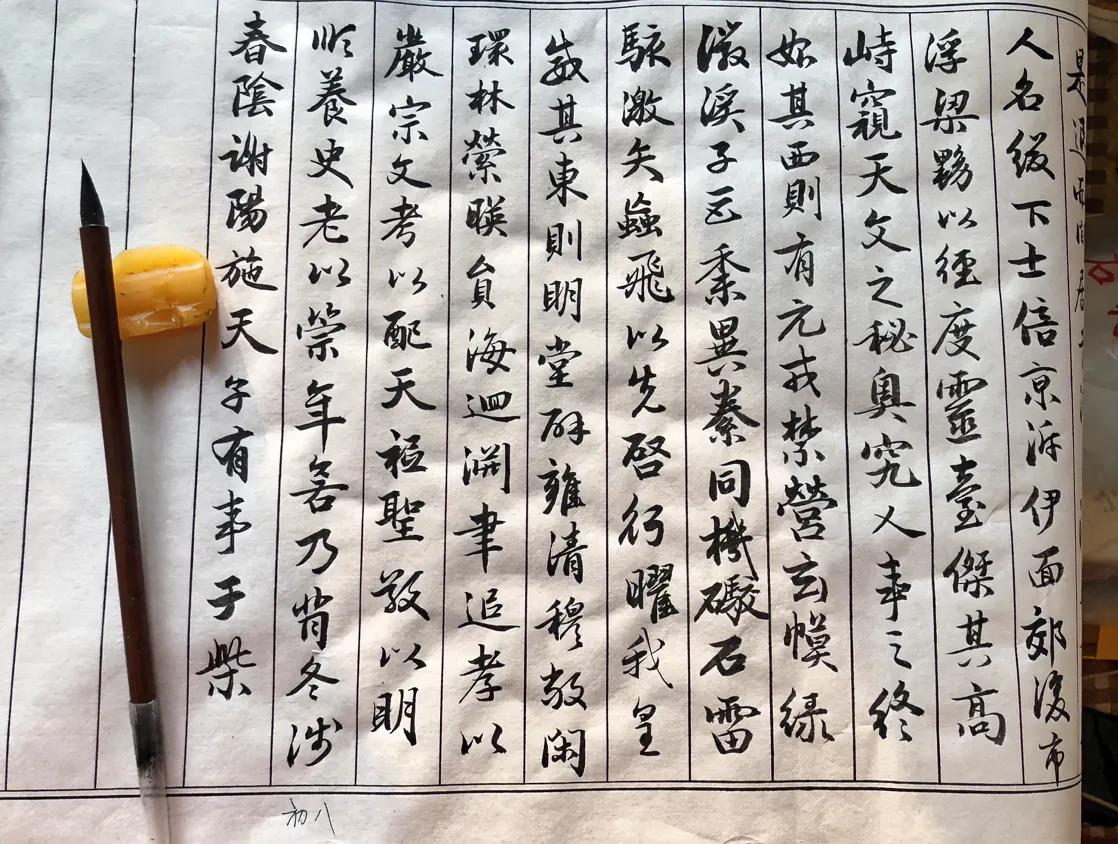 是退而閒居
人名綴下士倍京泝伊面郊後市
浮梁黝以徑度靈臺傑其高
峙窺天文之秘奧究人事之終
始其西則有元戎禁營玄幙綠
徽溪子巨黍異絭同機礮石雷
駭激矢蝱飛以先啓行曜我皇
威其東則明堂辟雍清穆敞閑
環林縈暎員海迴淵聿追孝以
嚴宗文考以配天祗聖敬以明
順養更老以崇年若乃背冬涉
春陰謝陽施天子有事于柴
初八